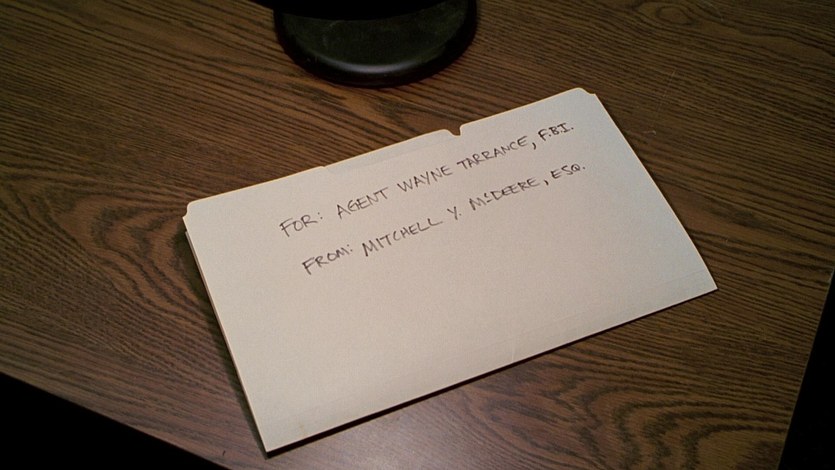 FOR: AGENT WAYNE TARRANCE, F.B.I.
FROM: MITCHELL Y. McDEERE, ESQ.